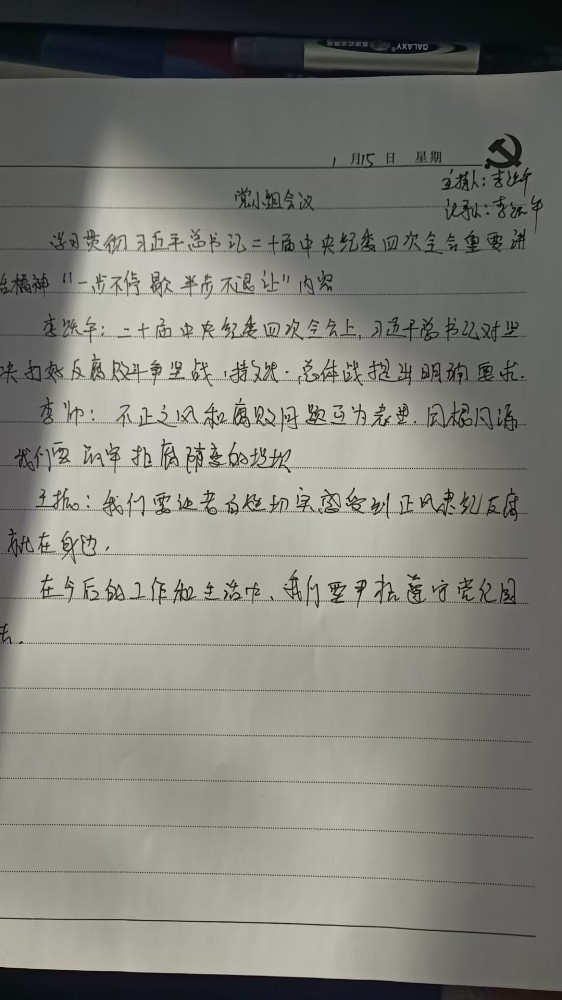 GALAXY
1 月 15 日 星期
主持人：李跃午
记录人：李跃午
党小组会议
学习贯彻习近平总书记二十届中央纪委四次全会重要讲
话精神“一步不停歇 半步不退让”内容
李跃午：二十届中央纪委四次全会上，习近平总书记对坚
决打好反腐败斗争坚战、持久战、总体战提出明确要求.
李帅：不正之风和腐败问题互为表里、同根同源
我们要 筑牢拒腐防变的堤坝
王振：我们要让者百姓切实感受到正风肃纪反腐
就在身边.
在今后的工作和生活中、我们要严格遵守党纪国
法.